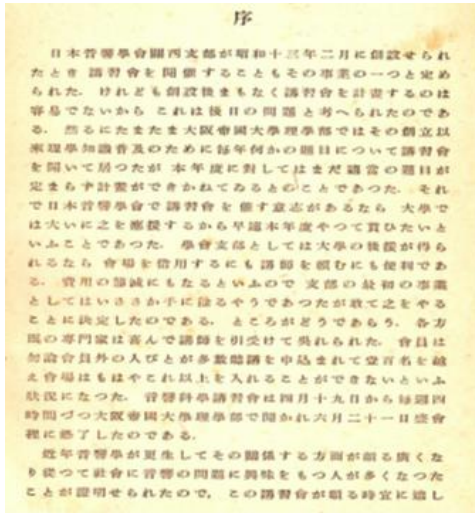 序
日本音響學會關西支部が昭和十三年二月に創設せられ
たとき 講習會を開催することもその事業の一つと定め
られた. けれども創設後まもなく講習會を計畫するのは
容易でないから これは後日の問題と考へられたのであ
る. 然るにたまたま大阪帝國大學理學部ではその創立以
來理學知識普及のために每年何かの題目について講習會
を開いて居つたが 本年度に對してはまだ適當の題目が
定まらず計畫ができかねてゐるとのことであつた. それ
で日本音響學會で講習會を催す意志があるなら 大學で
は大いに之を應援するから早速本年度やつて貰ひたいと
いふことであつた. 學會支部としては大學の後援が得ら
れるなら 會場を借用するにも講師を賴むにも便利であ
る. 費用の節減にもなるといふので 支部の最初の事業
としてはいささか手に餘るやうであつたが敢て之をやる
ことに決定したのである. ところがどうであらう. 各方
面の專門家は喜んで講師を引受けて吳れられた. 會員は
勿論會員外の人びとが多數聽講を申込まれて壹百名を越
え會場はもはやこれ以上を入れることができないといふ
狀況になつた. 音響科學講習會は四月十九日から每週四
時間づつ大阪帝國大學理學部で開かれ六月二十一日盛會
裡に終了したのである.
近年音響學が更生してその關係する方面が頗る廣くな
り從つて社會に音響の問題に興味をもつ人が多くなつた
ことが證明せられたので, この講習會が頗る時宜に適し